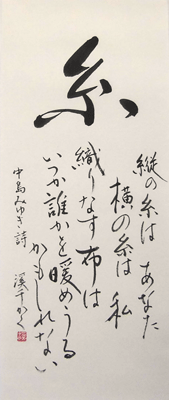 糸
縦の糸は あなた
横の糸は 私
織りなす布は
いつか誰かを暖めうる
かもしれない
中島みゆき詩
溪千かく